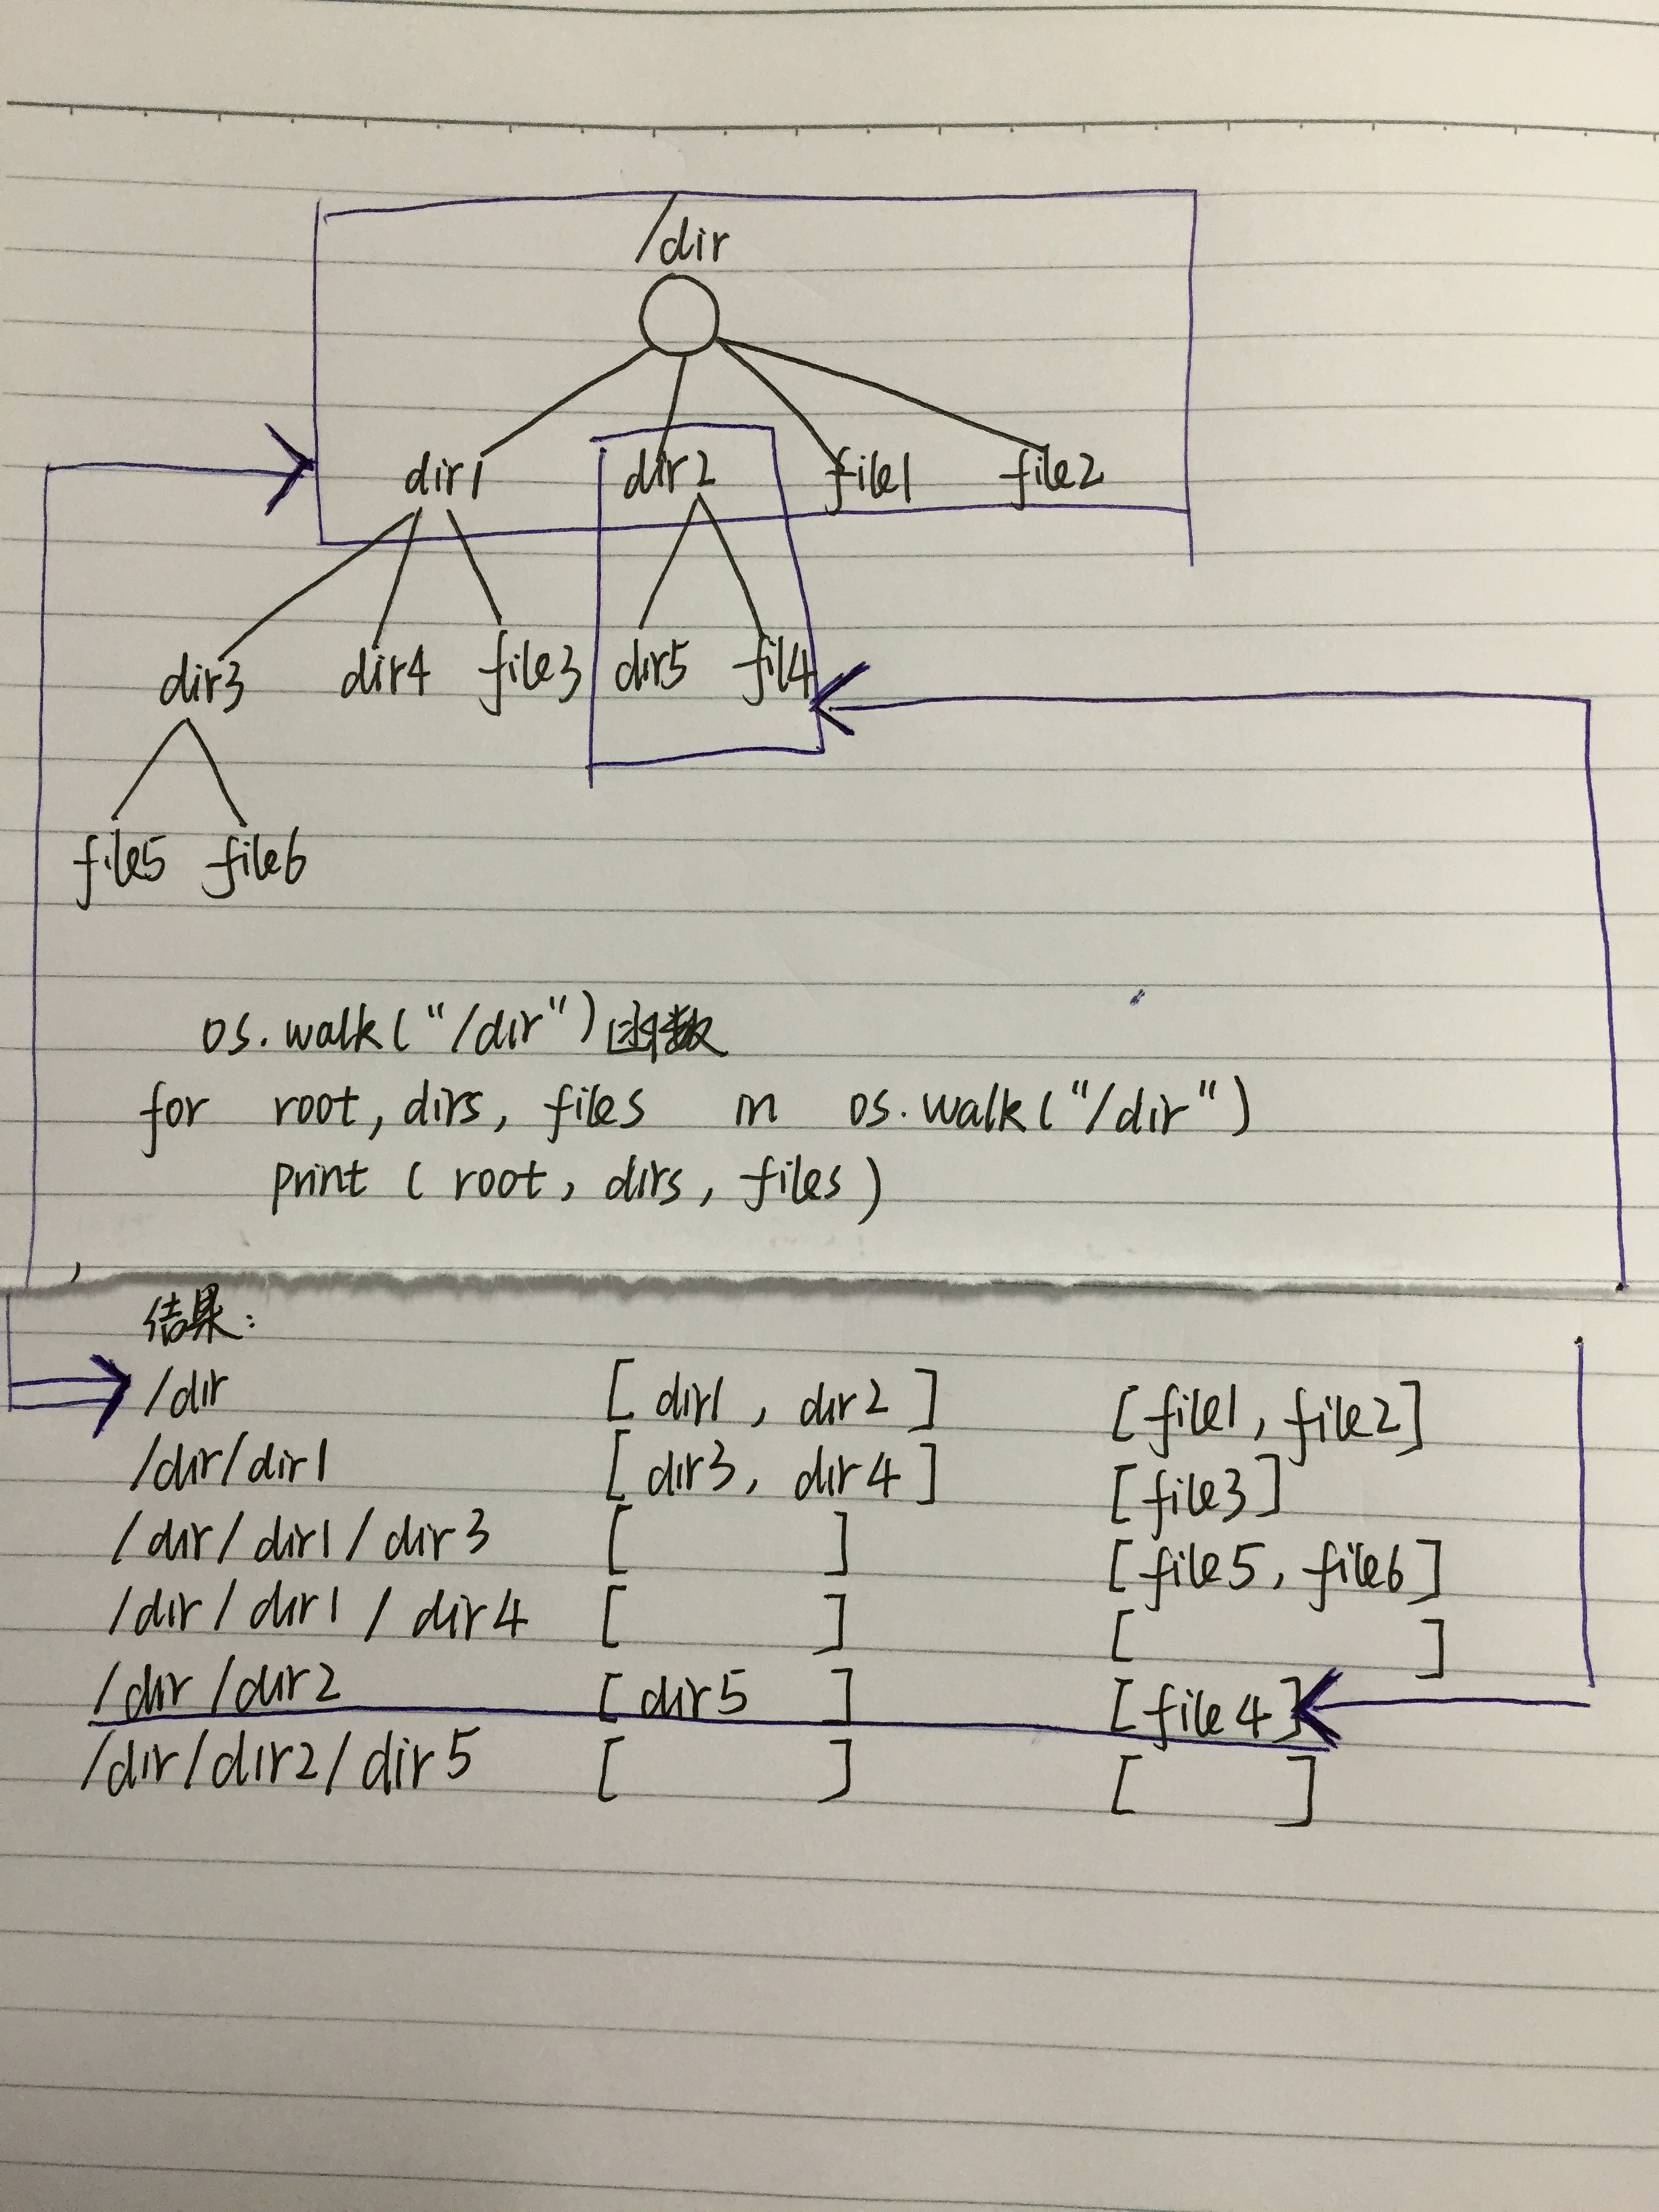 /dir
dir1 dir2 file1 file2
dir3 dir4 file3 dir5 fil4
file5 file6
os.walk("/dir")函数
for root, dirs, files in os.walk("/dir")
print ( root, dirs, files )
结果:
/dir [ dir1 , dir2 ] [ file1, file2 ]
/dir/dir1 [ dir3, dir4 ] [ file3 ]
/dir/dir1/dir3 [ ] [ file5, file6 ]
/dir/dir1/dir4 [ ] [ ]
/dir/dir2 [ dir5 ] [ file4 ]
/dir/dir2/dir5 [ ] [ ]